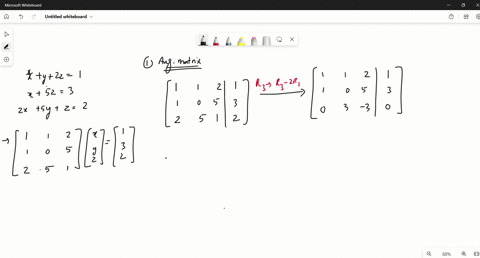 Microsoft Whiteboard
Untitled whiteboard
x + y + 2z = 1
x + 5z = 3
2x + 5y + z = 2
→ [1 1 2; 1 0 5; 2 5 1] [x; y; z] = [1; 3; 2]
① Aug. matrix
[1 1 2 | 1; 1 0 5 | 3; 2 5 1 | 2] R3 → R3 - 2R1 [1 1 2 | 1; 1 0 5 | 3; 0 3 -3 | 0]
68%